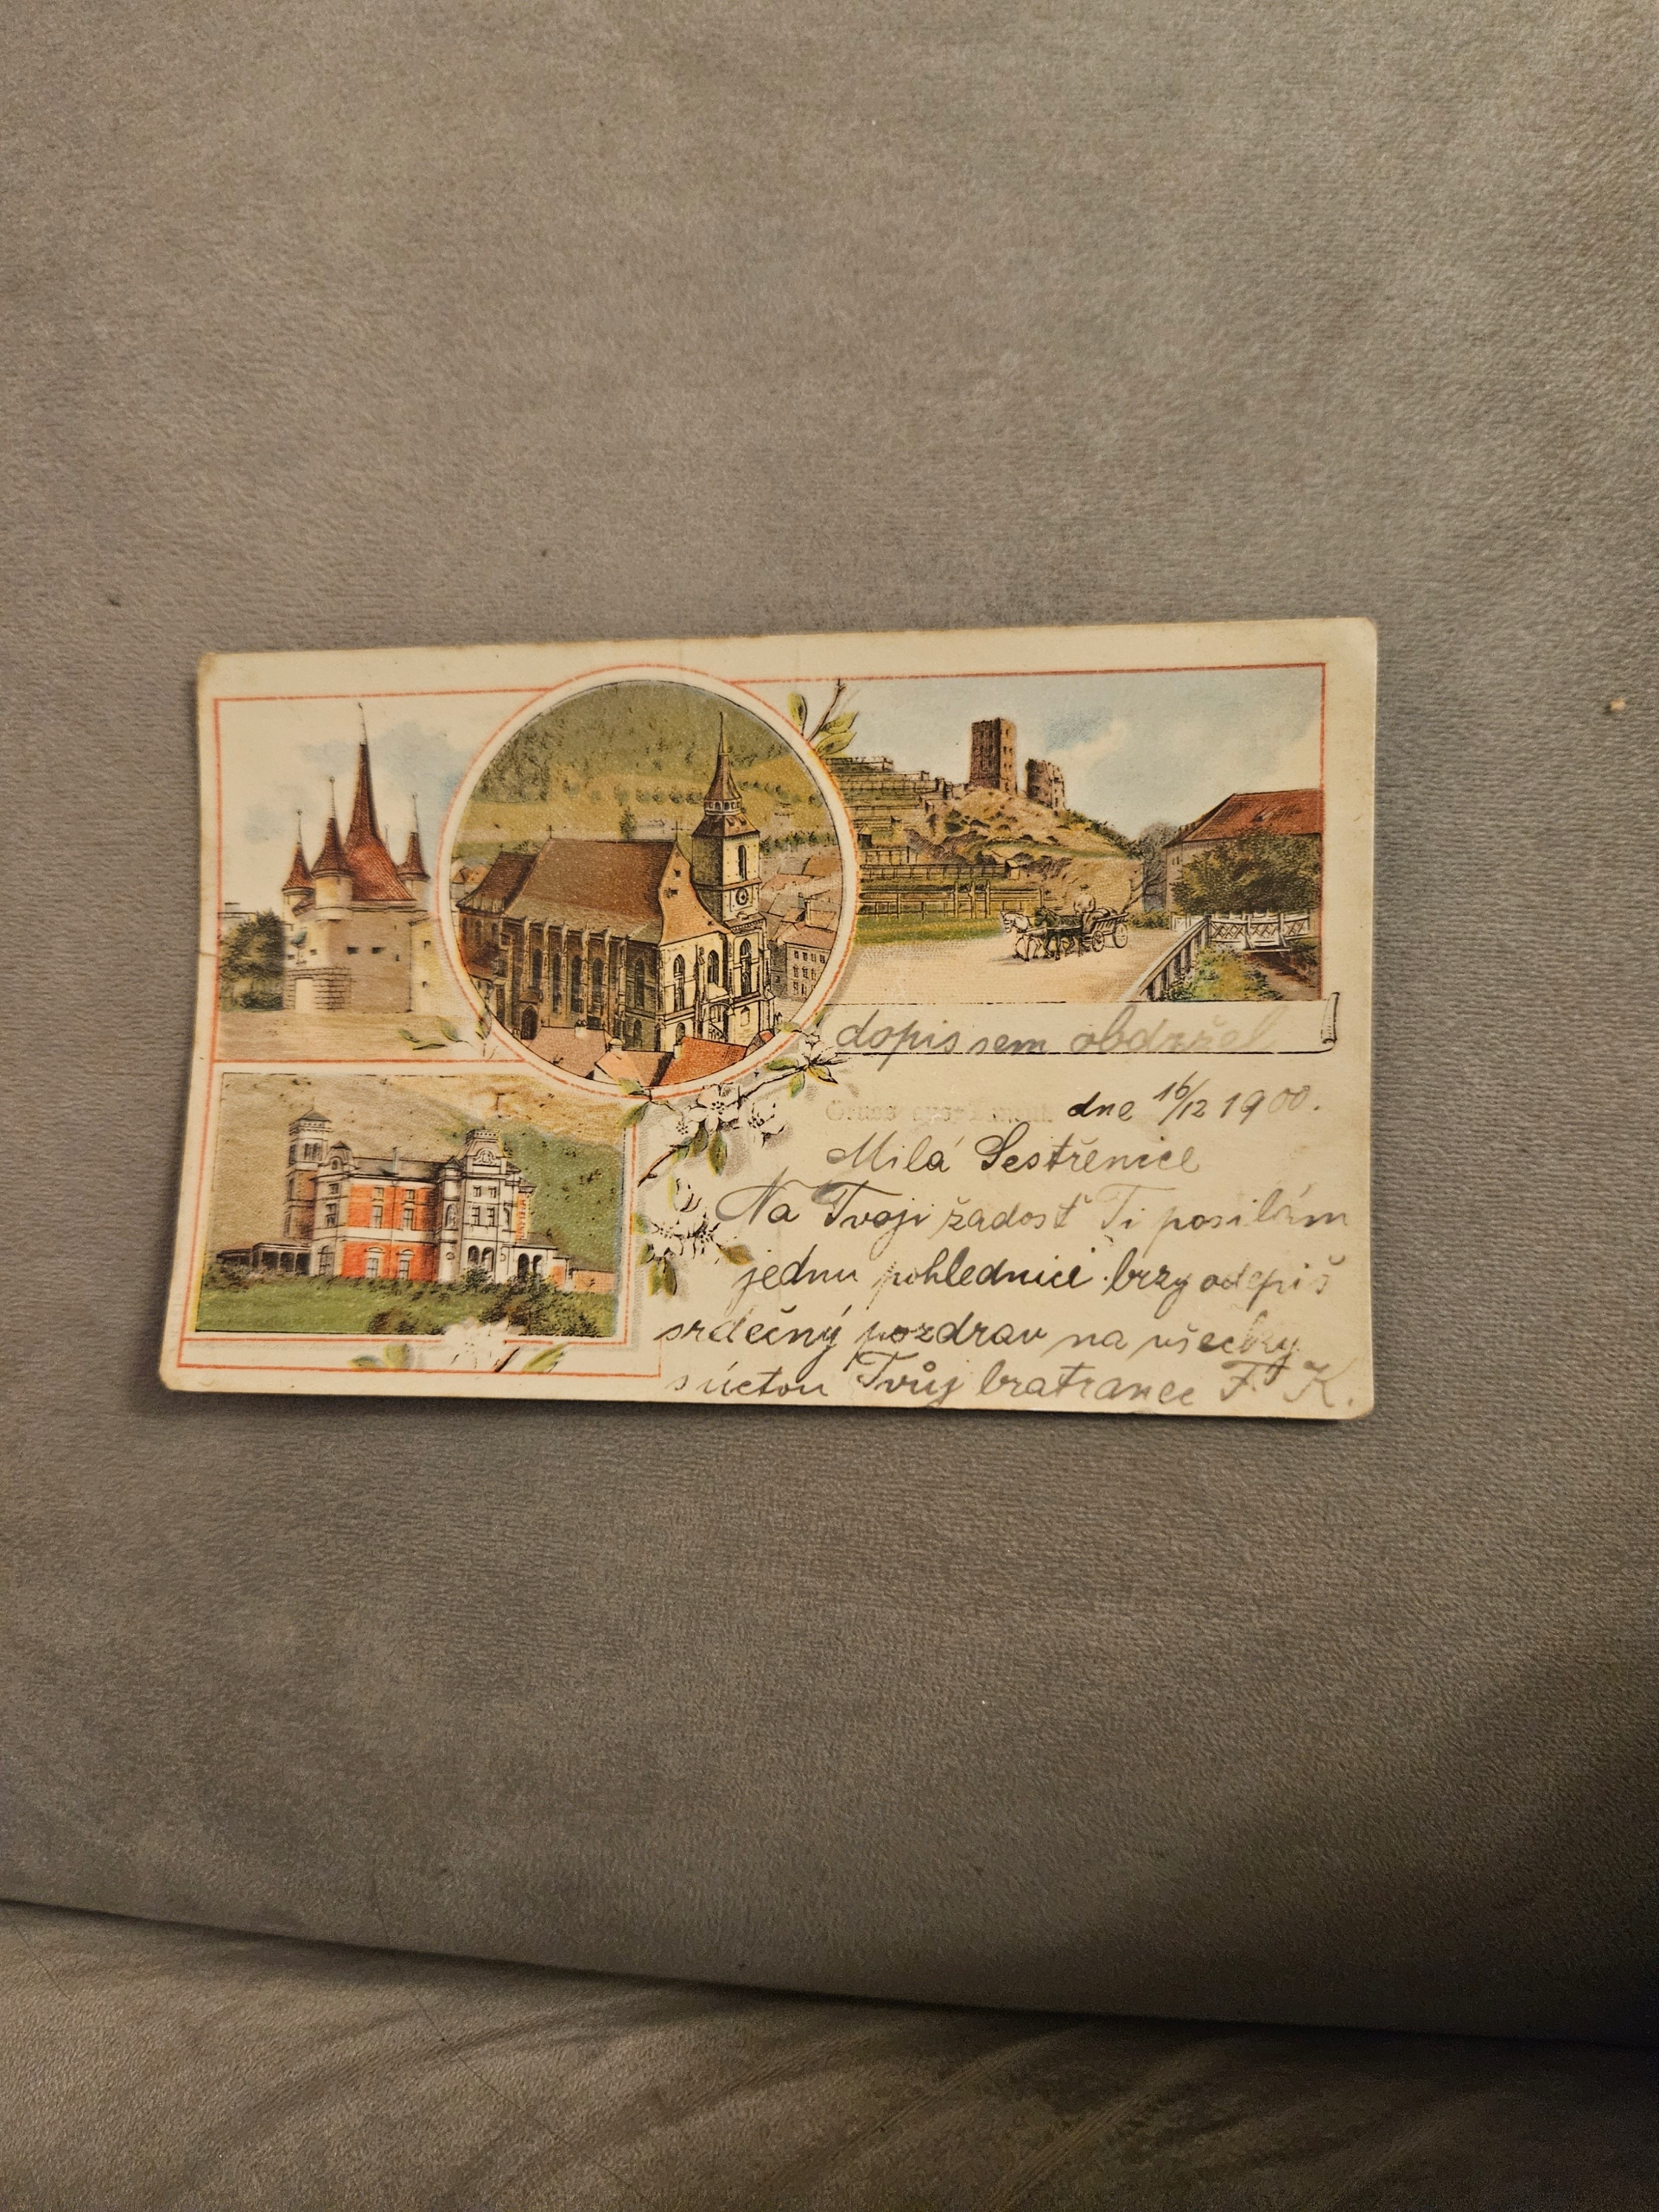 dopis sem obdržel
Gruss aus dne 16/12 1900.
Milá Sestřenice
Na Tvoji žadosť Ti posilám
jednu pohlednici brzy odepiš
srdečný pozdrav na všecky
s úctou Tvůj bratranec F. K.